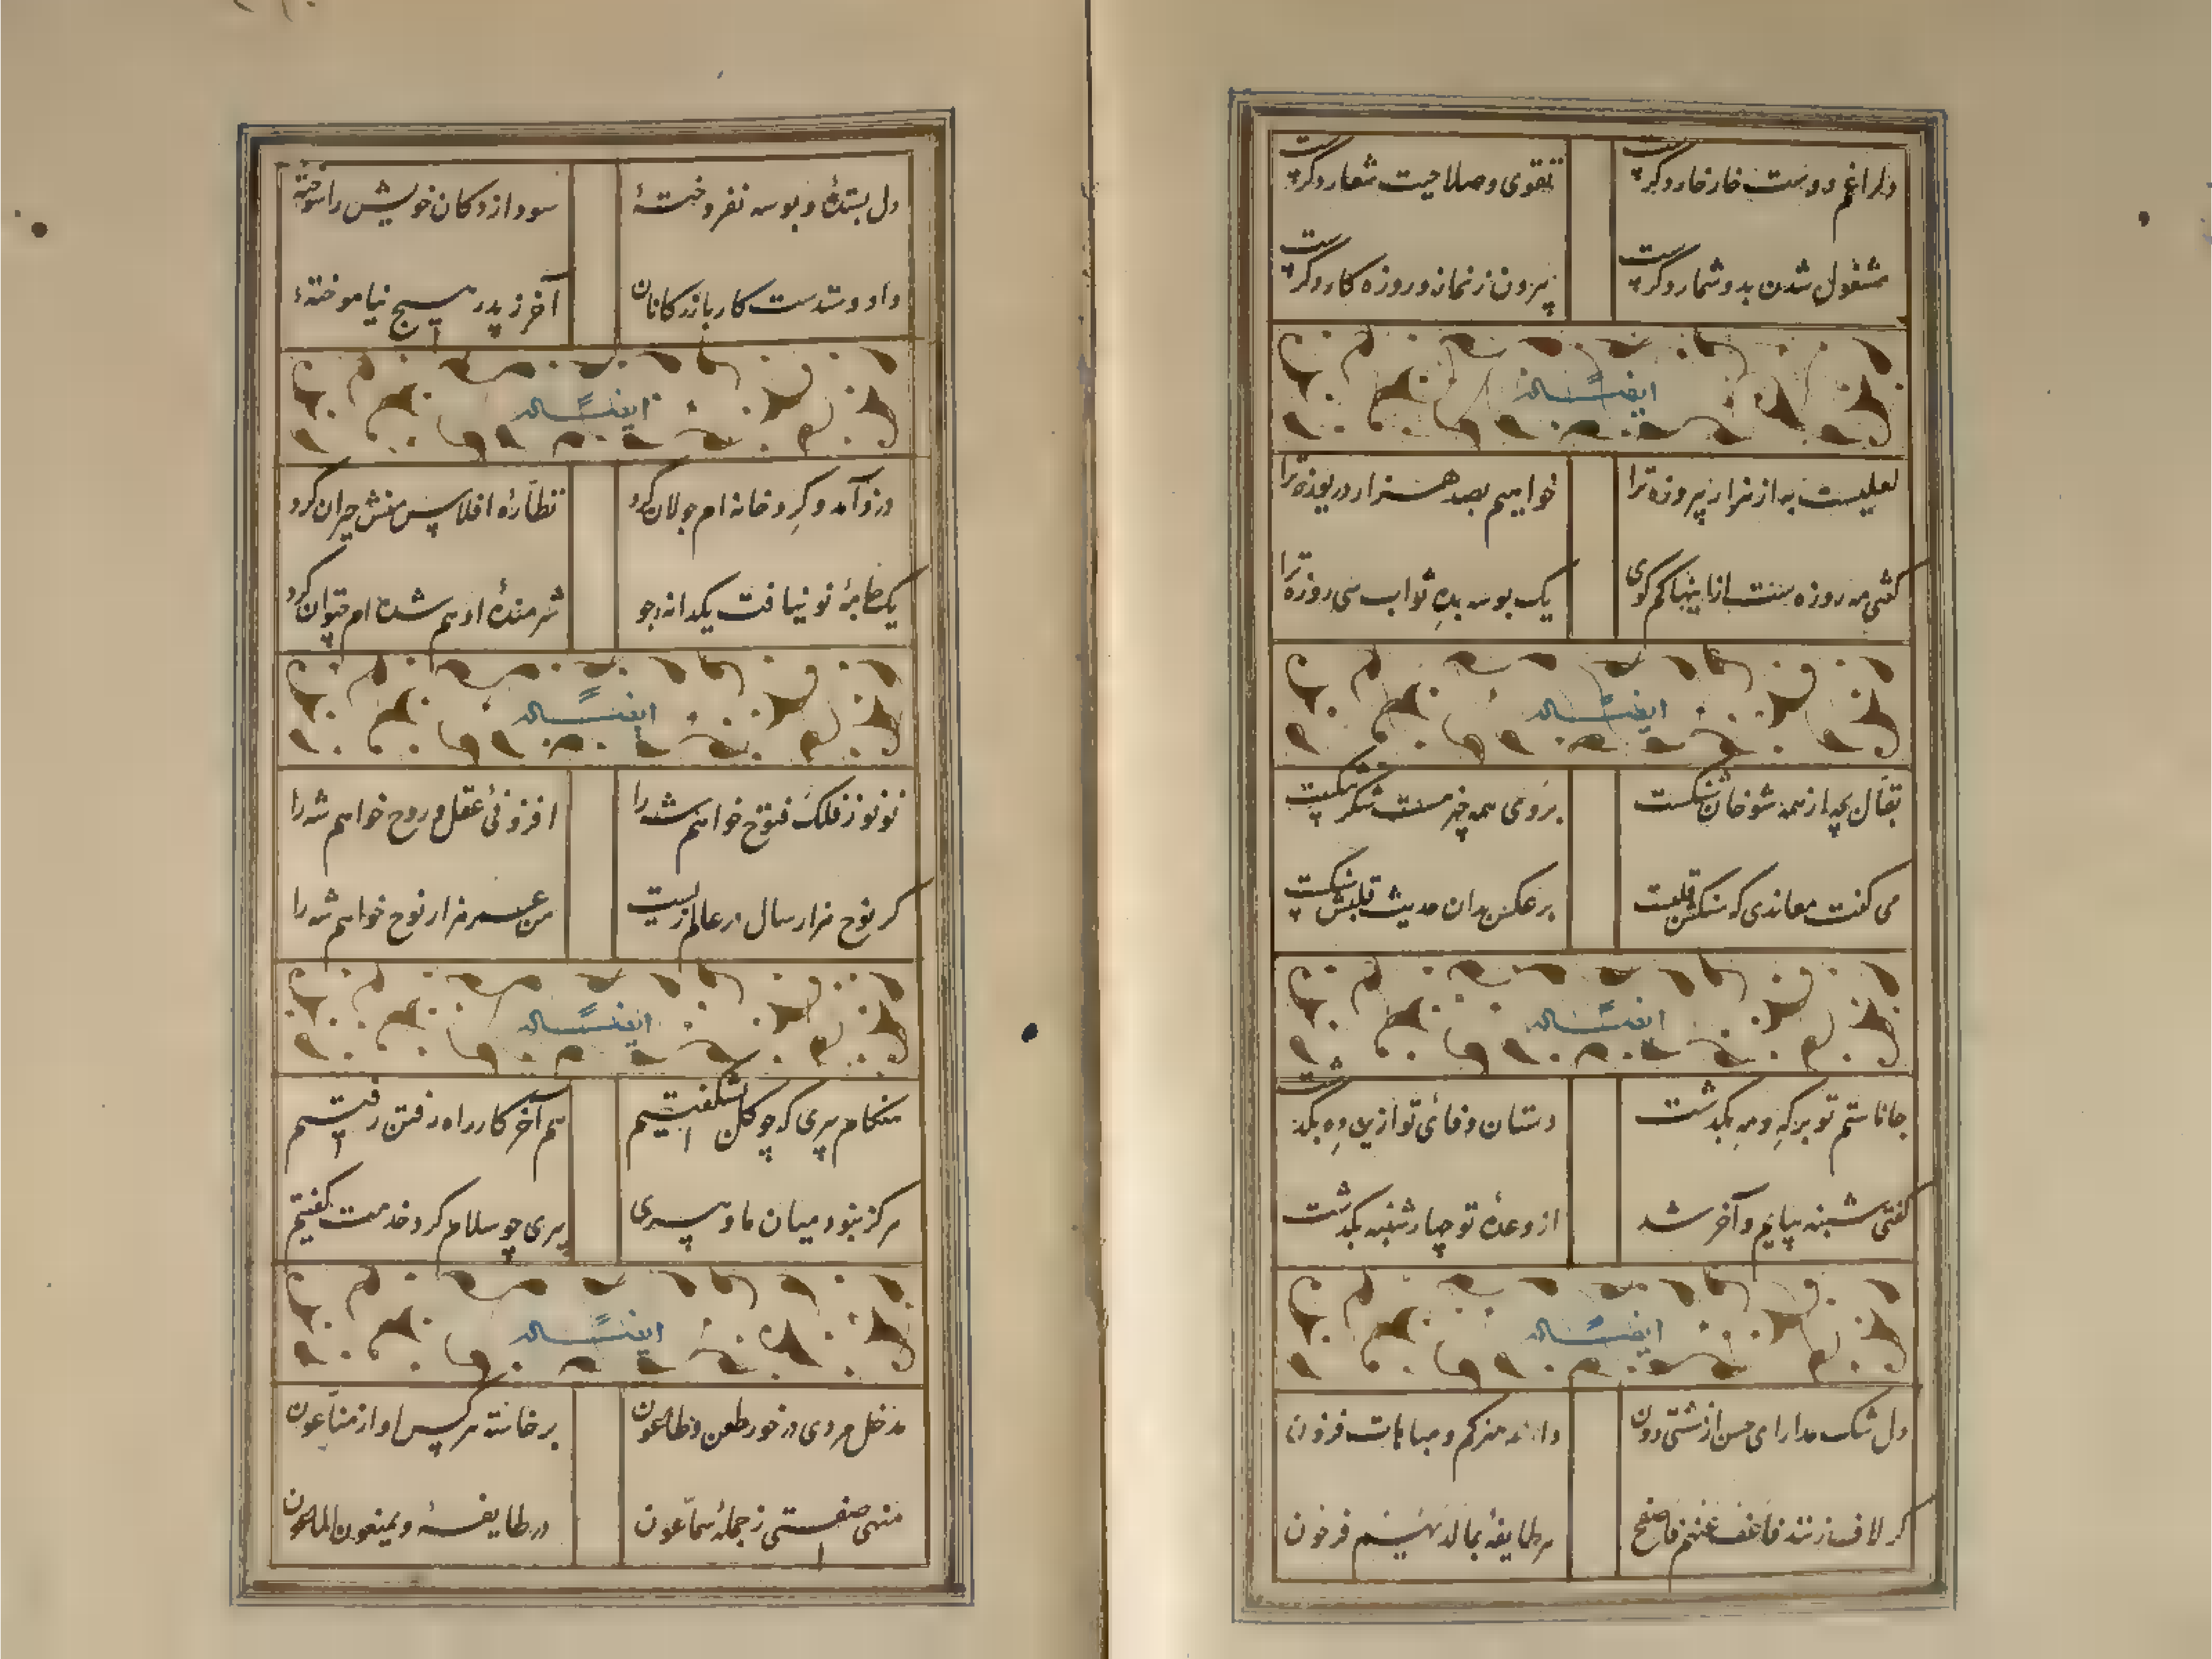 دلرا غم دوست خار خار دگرست
تقوی و صلاحیت شعار دگرست
مشغول شدن بدو شمار دگرست
بیرون ز نماز و روزه کار دگرست
ایضاً له
لعلیست به از هزار پیروزه ترا
خواهیم بصد هزار دریوزه ترا
گفتی مه روزه است ازینها کم گوی
یک بوسه بده ثواب سی روزه ترا
ایضاً له
بقال بچه از همه شوخان شنگست
بر وی همه چیز هست شکر
می گفت معاندی که سنگش قلبست
بر عکس بدان حدیث قلبش سنگست
ایضاً له
جانا ستم تو بر که و مه بگذشت
دستان وفای تو ازین ده بگذشت
گفتی شنبه بیایم و آخر شد
از وعدهٔ تو چهارشنبه بگذشت
ایضاً له
دل
دارند هنر کم و مباهات فزون
گر لاف زنند فاعف عنهم فاصفح
هر طایفهٔ بما لدیهم فرحون
دل بستدهٔ و بوسه نفروختهٔ
سود از دکان خویش را سوختهٔ
داد و ستدست کار بازرگانان
آخر ز پدر هیچ نیاموختهٔ
ایضاً له
دزد آمد و گرد خانه ام جولان کرد
نظارهٔ افلاس منش حیران کرد
یک جامهٔ نو نیافت یکدانه جو
شرمندهٔ او هم شده ام چتوان کرد
ایضاً له
نو نو ز فلک فتوح خواهم شه را
افزونی عقل و روح خواهم شه را
گر نوح هزار سال در عالم زیست
من عمر هزار نوح خواهم شه را
ایضاً له
هنگام پیری که چو گل بشگفتیم
هم آخر کار راه رفتن رفتیم
هرگز نبود میان ما و پیری
پیری چو سلام کرد خدمت گفتیم
ایضاً له
مدخل مردی در خور طعن و طاعون
برخاسته هر کس او از مناعون
منهی صفتی ز جملهٔ سماعون
در طایفهٔ و یمنعون الماعون